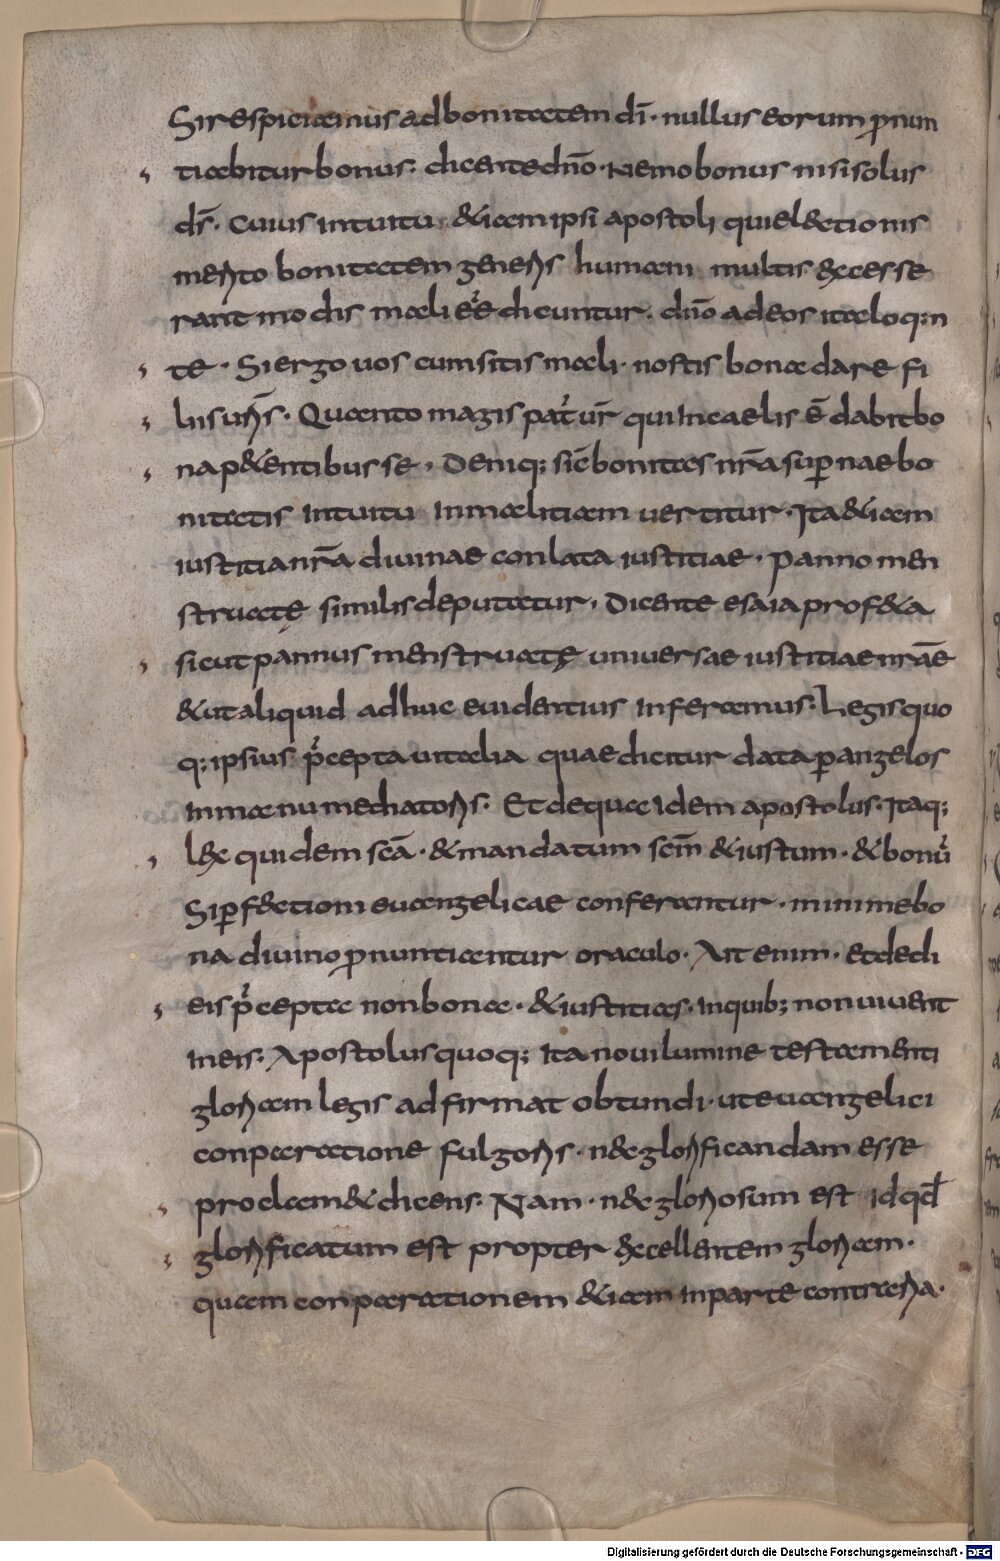 Si respiciamus ad bonitatem dī· nullus eorum pnun
tiabitur bonus· dicente dn̄o· Nemo bonus nisi solus
ds̄· Cuius intuitu &iam ipsi apostoli qui el&ctionis
merito bonitatem generis humani multis &cesse
rant modis mali eē dicuntur· dn̄o ad eos ita loq;n
te· Si ergo uos cum sitis mali· nostis bona dare fi
liis ur̄is· Quanto magis pat ur̄ qui in caelis ē dabit bo
na p&entibus se· Deniq; sic bonitas nr̄a supnae bo
nitatis intuitu in malitiam uertitur· Ita &iam
iustitia nr̄a diuinae conlata iustitiae· panno men
struatę similis deputatur· Dicente esaia prof&a
sicut pannus menstruatę uniuersae iustitiae nr̄ae
&ut aliquid adhuc euidentius inferamus· Legis quo
q; ipsius pcepta uitalia quae dicitur data p angelos
in manu mediatoris· Et de qua idem apostolus· Itaq;
l&x quidem scā· &mandatum scm̄ &iustum· &bonū
Si pf&ctioni euangelicae conferantur· minime bo
na diuino pnuntiantur oraculo· Ait enim· Et dedi
eis pcepta non bona· &iustitias· in quib; non uiuent
in eis· Apostolus quoq; ita noui lumine testamenti
gloriam legis adfirmat obtundi· ut euangelici
conparatione fulgoris· nec glorificandam esse
proclam& dicens· Nam· nec gloriosum est id qd̄
glorificatum est propter &cellentem gloriam·
quam conparationem &iam in parte contraria·
Digitalisierung gefördert durch die Deutsche Forschungsgemeinschaft - DFG